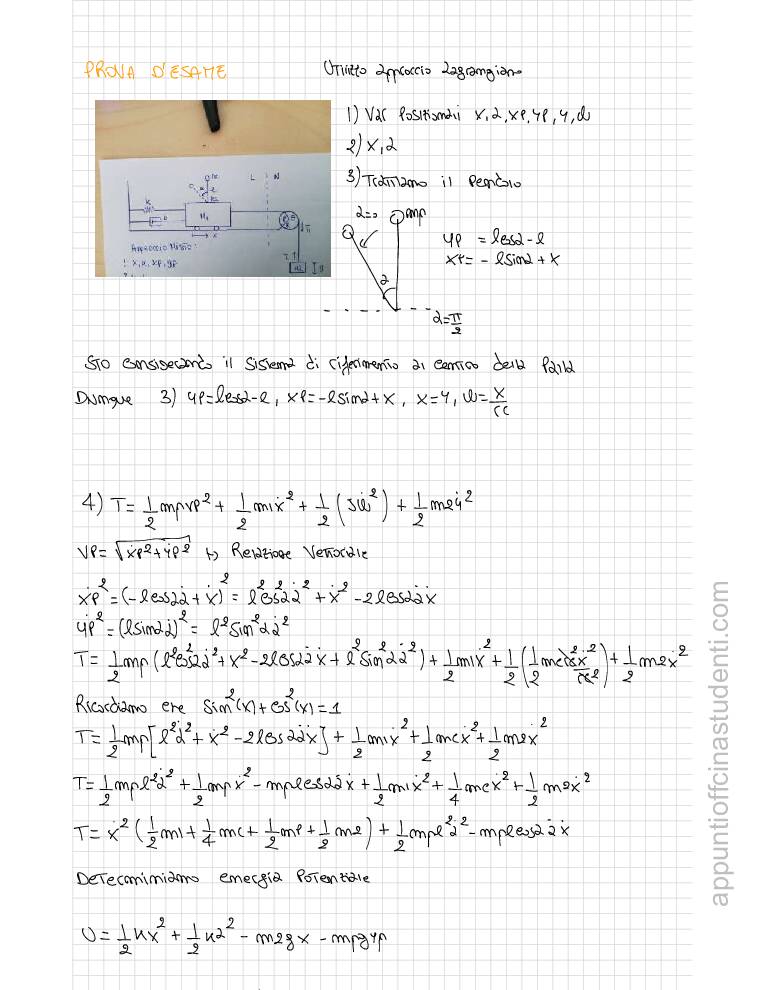 PROVA D'ESAME
Utilizzo approccio Lagrangiano
1) Var Posizionali x, α, xp, yp, y, ω
2) x, α
3) Trattiamo il Pendolo
α=0
mp
α
α=π/2
yp = lcosα - l
xp = - lsinα + x
K
M1
x
L
N
T1
M2
Approccio Misto:
1. x, α, xp, yp
Sto considerando il sistema di riferimento al centro della Palla
Dunque 3) yp=lcosα-l, xp=-lsinα+x, x=y, ω=x/rc
4) T= 1/2 mpvp² + 1/2 m1ẋ² + 1/2 (Jω̇²) + 1/2 m2ẏ²
vp= √(ẋp²+ẏp²) ↳ Relazione Vettoriale
ẋp²=(-lcosαα̇+ẋ)² = l²cos²αα̇² + ẋ² -2lcosαα̇ẋ
ẏp²=(lsinαα̇)² = l²sin²αα̇²
T= 1/2 mp (l²cos²αα̇²+ẋ²-2lcosαα̇ẋ+l²sin²αα̇²) + 1/2 m1ẋ²+ 1/2 (1/2 mcrc²ẋ²/rc²) + 1/2 m2ẋ²
Ricordiamo che sin²(x)+cos²(x)=1
T= 1/2 mp[l²α̇²+ẋ²-2lcosαα̇ẋ] + 1/2 m1ẋ²+ 1/2 mcẋ²+ 1/2 m2ẋ²
T= 1/2 mpl²α̇² + 1/2 mpẋ² - mplcosαα̇ẋ + 1/2 m1ẋ²+ 1/4 mcẋ²+ 1/2 m2ẋ²
T= ẋ² (1/2 m1+ 1/4 mc+ 1/2 mp+ 1/2 m2) + 1/2 mpl²α̇²- mplcosαα̇ẋ
Determiniamo energia Potenziale
U= 1/2 kx² + 1/2 kα² - m2gx - mpgyp
appuntioffcinastudenti.com